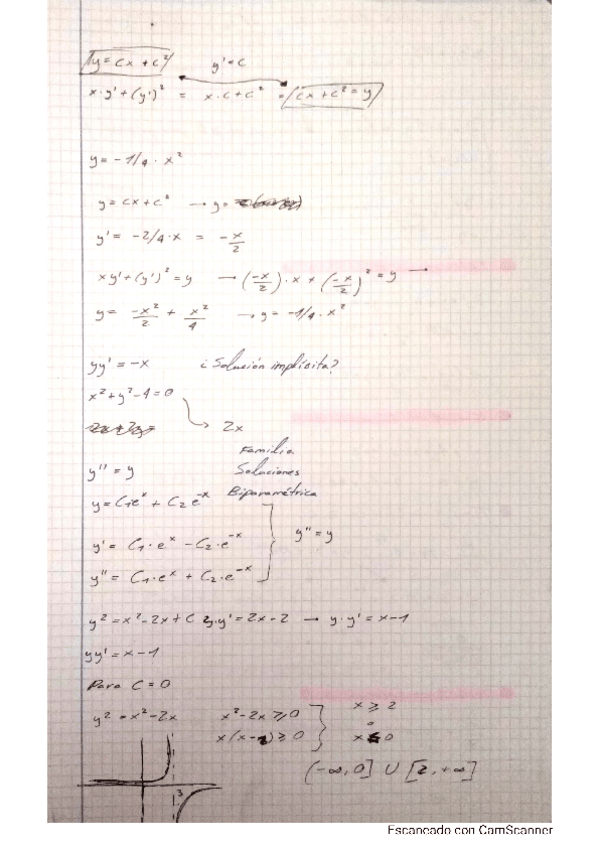 y = cx + c²   y' = c
x·y' + (y')² = x·c + c² = cx + c² = y
y = -1/4 · x²
y = cx + c² → y =
y' = -2/4·x = -x/2
xy' + (y')² = y → (-x/2)·x + (-x/2)² = y →
y = -x²/2 + x²/4 → y = -1/4·x²
yy' = -x   ¿Solución implícita?
x² + y² - 4 = 0
2x
Familia
y'' = y   Soluciones
y = C₁e^x + C₂e^-x   Biparamétrica
y' = C₁·e^x - C₂·e^-x   y'' = y
y'' = C₁·e^x + C₂·e^-x
y² = x² - 2x + C   2y·y' = 2x - 2 → y·y' = x - 1
yy' = x - 1
Para C = 0
y² = x² - 2x   x² - 2x ≥ 0   x ≥ 2
x(x-2) ≥ 0   x ≤ 0
(-∞, 0] ∪ [2, +∞]
3
Escaneado con CamScanner